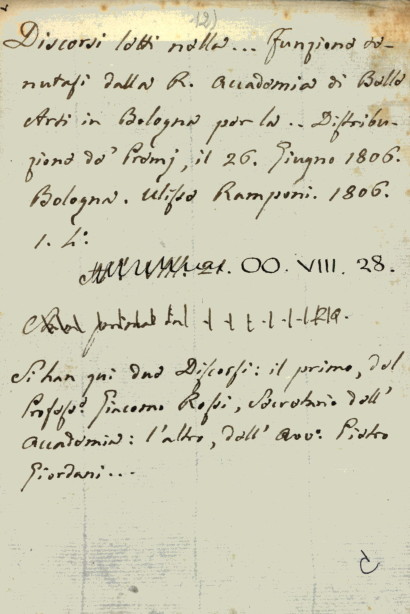 (12)
Discorsi letti nella ... Funzione te-
nutasi dalla R. Accademia di Belle
Arti in Bologna per la .. Distribu-
zione de' Premj, il 26. Giugno 1806.
Bologna. Ulisse Ramponi. 1806.
1. 4°.
OO. VIII. 28.
Si han qui due Discorsi: il primo, del
Profess.r Giacomo Rossi, Secretario dell'
Accademia: l'altro, dell' Avv.° Pietro
Giordani...